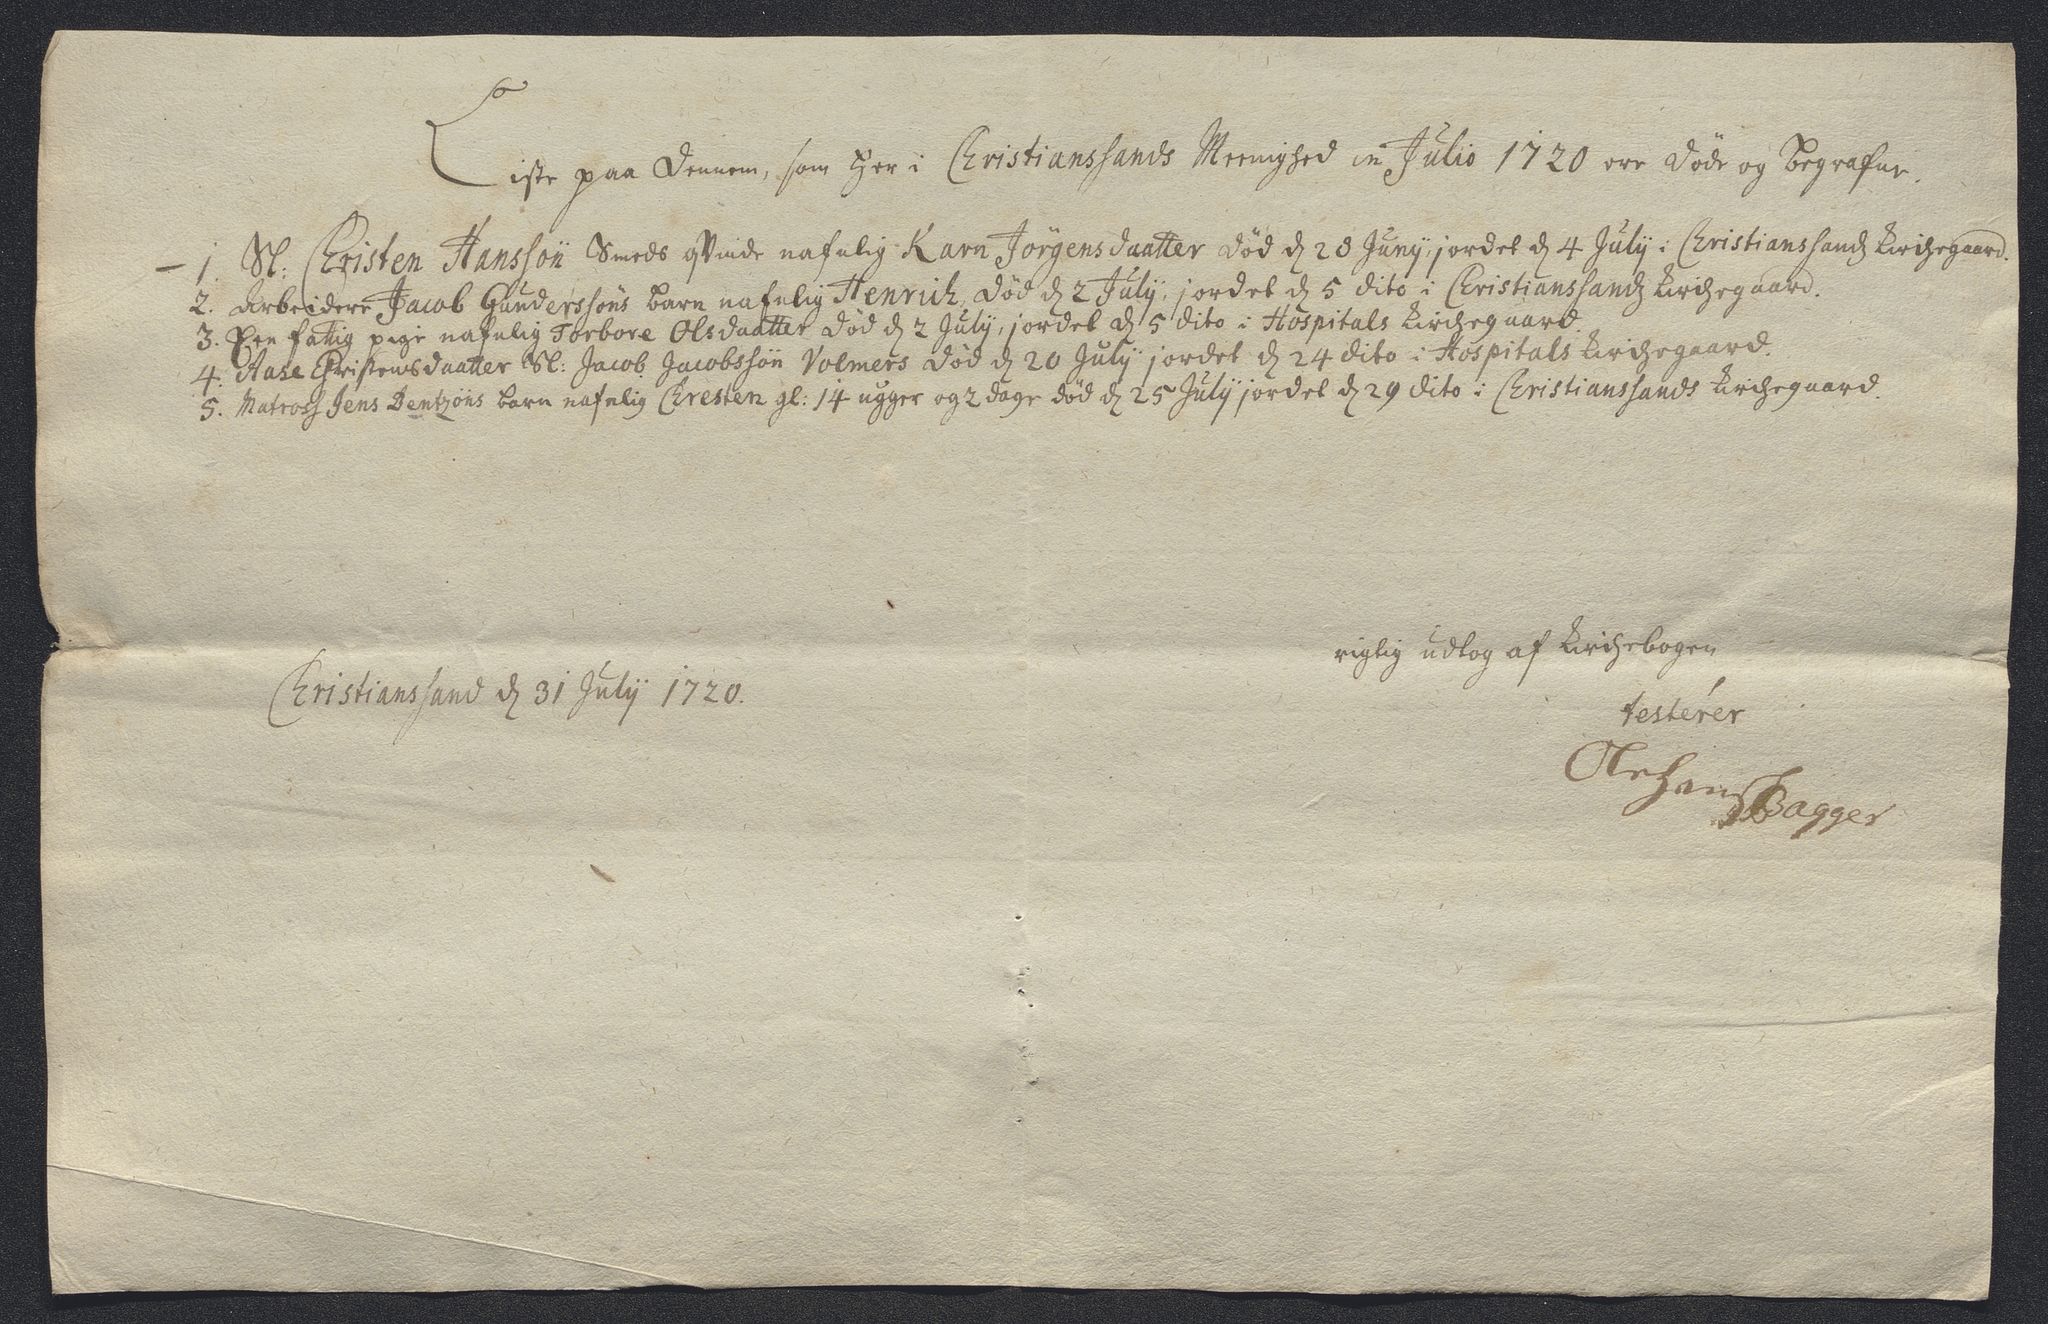 Liste paa dennem, som her i Christianssands Meenighed in Julio 1720 ere døde og begrafne.
1. Sl: Christen Hanssøn Smeds qvinde nafnlig Karn Jørgensdaatter død d 28 Juny, jordet d 4 July i Christianssands kirchegaard.
2. Arbeidere Jacob Gunderssøns barn nafnlig Henrich, død d 2 July, jordet d 5 dito i Christianssands kirchegaard.
3. Een fattig pige nafnlig Torbore Olsdaatter død d 2 July, jordet d 5 dito i Hospitals kirchegaard.
4. Aase Christensdaatter Sl: Jacob Jacobssøn Volmers død d 20 July jordet d 24 dito i Hospitals kirchegaard.
5. Matross Jens Bentzøns barn nafnlig Chresten gl: 14 ugger og 2 dage død d 25 July jordet d 29 dito i Christianssands kirchegaard.
rigtig udtog af kirchebogen
Christianssand d 31 July 1720.
testerer
Ole Hans Bagger